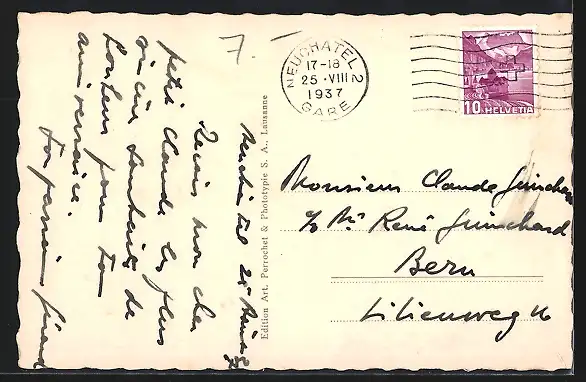 7.–
NEUCHATEL 2
17-18
25.VIII
1937
GARE
10 HELVETIA
Neuchâtel 25 Août 37
Reçois mon cher
petit Claude les plus
sincères souhaits de
bonheur pour ton
anniversaire.
Ton parrain
Edition Art. Perrochet & Phototypie S. A., Lausanne
Monsieur Claude Guinchard
c/o Mr René Guinchard
Bern
Lilienweg 16